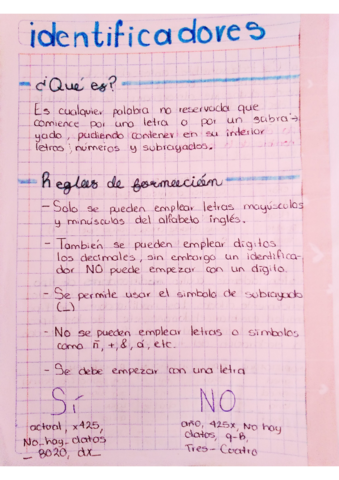 identificadores
¿Qué es?
Es cualquier palabra no reservada que
comience por una letra o por un subra-
yado, pudiendo contener en su interior
letras, números y subrayados.
Reglas de formación
- Solo se pueden emplear letras mayúsculas
y minúsculas del alfabeto inglés.
- También se pueden emplear dígitos
los decimales, sin embargo un identifica-
dor NO puede empezar con un dígito.
- Se permite usar el símbolo de subrayado
(_)
- No se pueden emplear letras o símbolos
como ñ, +, &, á, etc.
- Se debe empezar con una letra
Sí
actual, x425,
No_hay_datos
_8020, dx_
NO
año, 425x, No hay
datos, q-B,
Tres-Cuatro